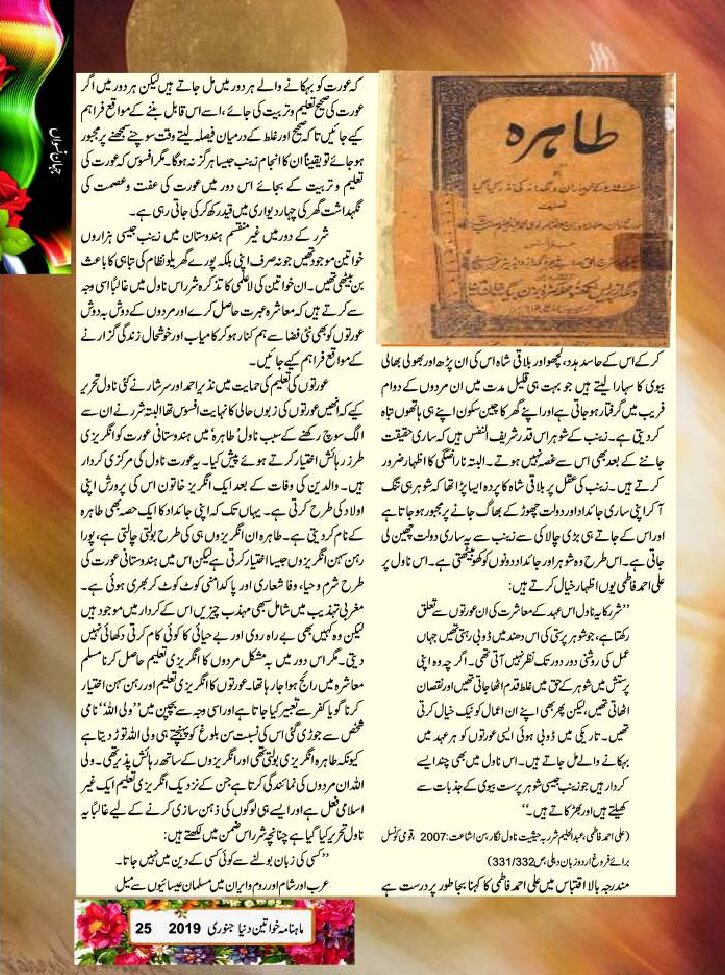 جہان نسواں
طاہرہ
کر کے اس کے حاسد ہدد، لیٹھو اور بلاقی شاہ اس کی ان پڑھ اور بھولی بھالی
بیوی کا سہارا لیتے ہیں جو بہت ہی قلیل مدت میں ان مردوں کے دوام
فریب میں گرفتار ہو جاتی ہے اور اپنے گھر کا چین سکون اپنے ہی ہاتھوں تباہ
کر دیتی ہے۔ زینب کے شوہر اس قدر شریف النفس ہیں کہ ساری حقیقت
جاننے کے بعد بھی اس سے غصہ نہیں ہوتے۔ البتہ ناراضگی کا اظہار ضرور
کرتے ہیں۔ زینب کی عقل پر بلاقی شاہ کا پردہ ایسا پڑا تھا کہ شوہر ہی تنگ
آ کر اپنی ساری جائداد اور دولت چھوڑ کے بھاگ جانے پر مجبور ہو جاتا ہے
اور اس کے جاتے ہی بڑی چالاکی سے زینب سے یہ ساری دولت چھین لی
جاتی ہے۔ اس طرح وہ شوہر اور جائداد دونوں کو کھو بیٹھتی ہے۔ اس ناول پر
علی احمد فاطمی یوں اظہار خیال کرتے ہیں:
”شرر کا یہ ناول اس عہد کے معاشرت کی ان عورتوں سے تعلق
رکھتا ہے، جو شوہر پرستی کی اس دھند میں ڈوبی رہتی تھیں جہاں
عمل کی روشنی دور دور تک نظر نہیں آتی تھی۔ اگرچہ وہ اپنی
پرستش میں شوہر کے حق میں غلط قدم اٹھا جاتی تھیں اور نقصان
اٹھاتی تھیں، لیکن پھر بھی اپنے ان اعمال کو نیک خیال کرتی
تھیں۔ تاریکی میں ڈوبی ہوئی ایسی عورتوں کو ہر عہد میں
بہکانے والے مل جاتے ہیں۔ اس ناول میں بھی چند ایسے
کردار ہیں جو زینب جیسی شوہر پرست بیوی کے جذبات سے
کھیلتے ہیں اور بھڑکاتے ہیں۔“
(علی احمد فاطمی، عبدالحلیم شرر بہ حیثیت ناول نگار، سن اشاعت: 2007، قومی کونسل
برائے فروغ اردو زبان دہلی، ص 331/332)
مندرجہ بالا اقتباس میں علی احمد فاطمی کا کہنا بجا طور پر درست ہے
کہ عورت کو بہکانے والے ہر دور میں مل جاتے ہیں لیکن ہر دور میں اگر
عورت کی صحیح تعلیم و تربیت کی جائے، اسے اس قابل بننے کے مواقع فراہم
کیے جائیں تاکہ صحیح اور غلط کے درمیان فیصلہ لیتے وقت سوچنے سمجھنے پر مجبور
ہو جائے تو یقیناً ان کا انجام زینب جیسا ہرگز نہ ہوگا۔ مگر افسوس کہ عورت کی
تعلیم و تربیت کے بجائے اس دور میں عورت کی عفت و عصمت کی
نگہداشت گھر کی چہار دیواری میں قید رکھ کر کی جاتی رہی ہے۔
شرر کے دور میں غیر منقسم ہندوستان میں زینب جیسی ہزاروں
خواتین موجود تھیں جو نہ صرف اپنی بلکہ پورے گھریلو نظام کی تباہی کا باعث
بن بیٹھی تھیں۔ ان خواتین کی لاعلمی کا تذکرہ شرر اس ناول میں غالباً اسی وجہ
سے کرتے ہیں کہ معاشرہ عبرت حاصل کرے اور مردوں کے دوش بہ دوش
عورتوں کو بھی نئی فضا سے ہم کنار ہو کر کامیاب اور خوشحال زندگی گزارنے
کے مواقع فراہم کیے جائیں۔
عورتوں کی تعلیم کی حمایت میں نذیر احمد اور سرشار نے کئی ناول تحریر
کیے کہ انھیں عورتوں کی زبوں حالی کا نہایت افسوس تھا البتہ شرر نے ان سے
الگ سوچ رکھنے کے سبب ناول ’طاہرہ‘ میں ہندوستانی عورت کو انگریزی
طرز رہائش اختیار کرتے ہوئے پیش کیا۔ یہ عورت ناول کی مرکزی کردار
ہیں۔ والدین کی وفات کے بعد ایک انگریز خاتون اس کی پرورش اپنی
اولاد کی طرح کرتی ہے۔ یہاں تک کہ اپنی جائداد کا ایک حصہ بھی طاہرہ
کے نام کر دیتی ہے۔ طاہرہ ان انگریزوں ہی کی طرح بولتی چالتی ہے، پورا
رہن سہن انگریزوں جیسا اختیار کرتی ہے لیکن اس میں ہندوستانی عورت کی
طرح شرم و حیا، وفا شعاری اور پاکدامنی کوٹ کوٹ کر بھری ہوئی ہے۔
مغربی تہذیب میں شامل سبھی مہذب چیزیں اس کے کردار میں موجود ہیں
لیکن وہ کہیں بھی بے راہ روی اور بے حیائی کا کوئی کام کرتی دکھائی نہیں
دیتی۔ مگر اس دور میں بہ مشکل مردوں کا انگریزی تعلیم حاصل کرنا مسلم
معاشرہ میں رائج ہوا جا رہا تھا۔ عورتوں کا انگریزی تعلیم اور رہن سہن اختیار
کرنا گویا کفر سے تعبیر کیا جاتا ہے اور اسی وجہ سے بچپن میں ”ولی اللہ“ نامی
شخص سے جوڑی گئی اس کی نسبت سن بلوغ کو پہنچتے ہی ولی اللہ توڑ دیتا ہے
کیونکہ طاہرہ انگریزی بولتی تھی اور انگریزوں کے ساتھ رہائش پذیر تھی۔ ولی
اللہ ان مردوں کی نمائندگی کرتا ہے جن کے نزدیک انگریزی تعلیم ایک غیر
اسلامی فعل ہے اور ایسے ہی لوگوں کی ذہن سازی کرنے کے لیے غالباً یہ
ناول تحریر کیا گیا ہے چنانچہ شرر اس ضمن میں لکھتے ہیں:
”کسی کی زبان بولنے سے کوئی کسی کے دین میں نہیں جاتا۔
عرب اور شام اور روم و ایران میں مسلمان عیسائیوں سے میل
ماہنامہ خواتین دنیا جنوری 2019 25